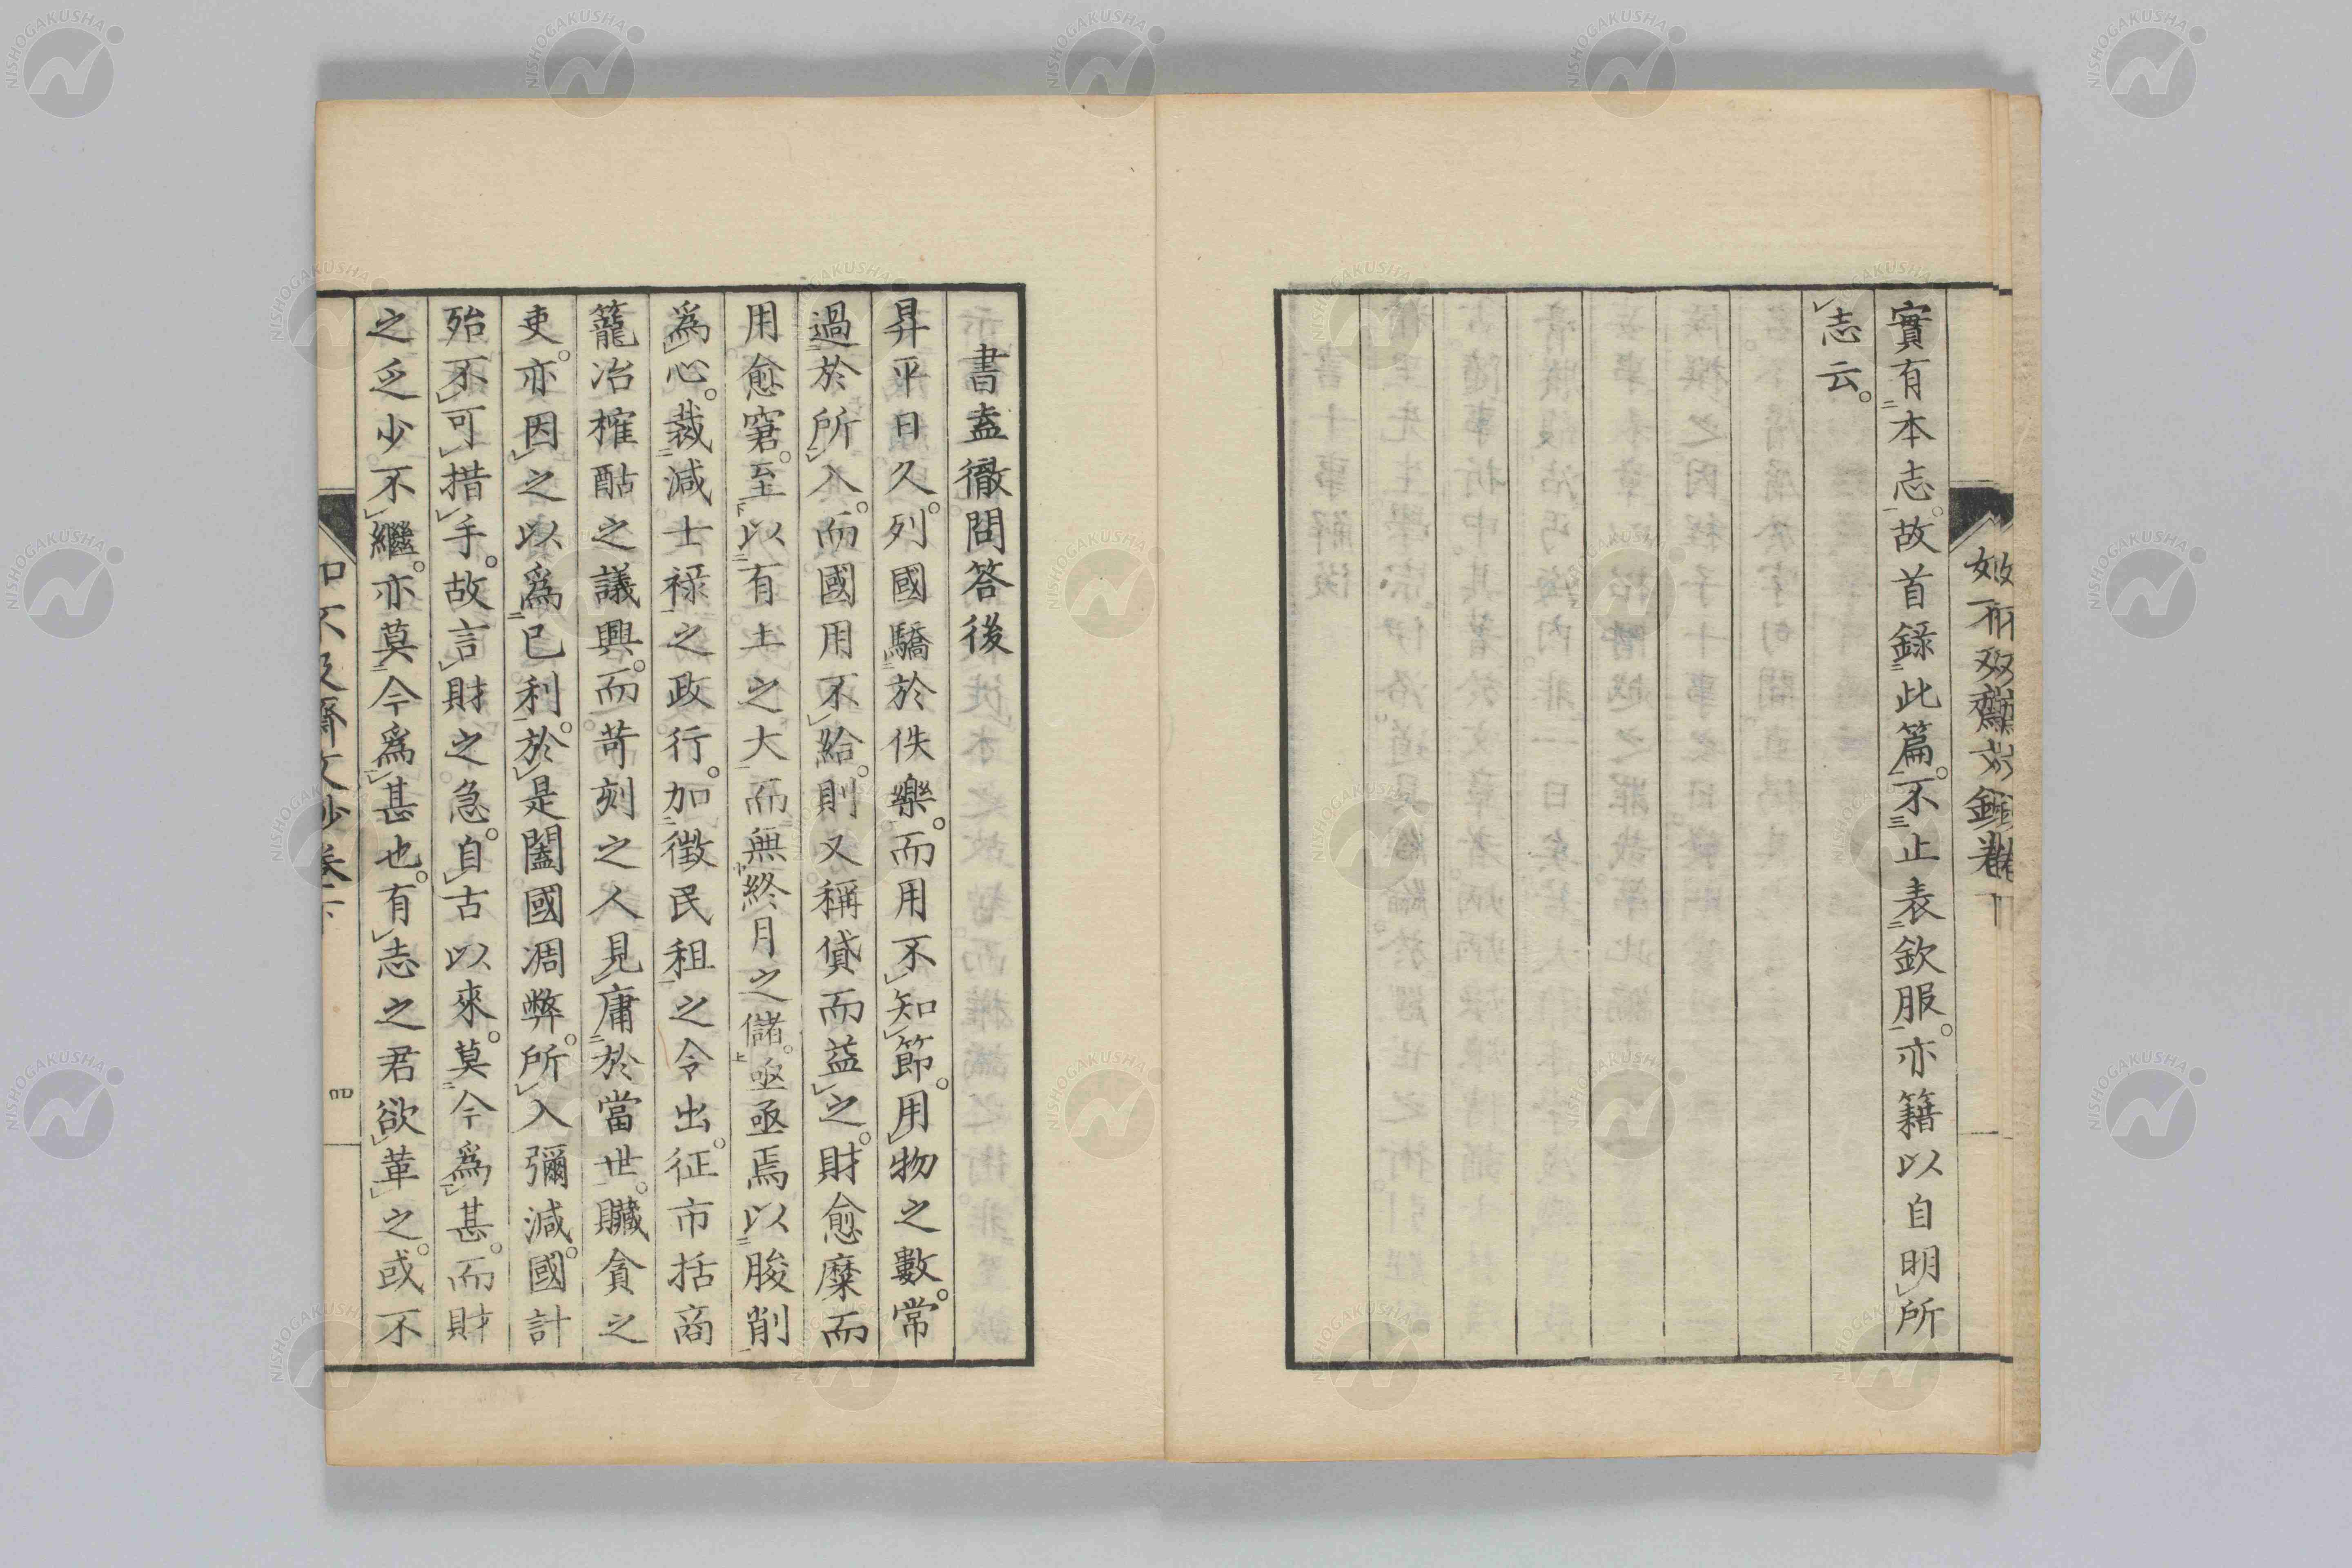 實有本志。故首錄此篇。不止表欽服。亦籍以自明所
志云。
書盍徹問答後
昇平日久。列國驕於佚樂。而用不知節。用物之數。常
過於所入。而國用不給。則又稱貸而益之。財愈糜而
用愈窘。至以有土之大而無終月之儲。亟亟焉以朘削
爲心。裁減士祿之政行。加徵民租之令出。征市括商
籠冶榷酤之議興。而苛刻之人見庸於當世。贓貪之
吏。亦因之以爲已利。於是闔國凋弊。所入彌減。國計
殆不可措手。故言財之急。自古以來。莫今爲甚。而財
之乏少不繼。亦莫今爲甚也。有志之君欲革之。或不
四
NISHOGAKUSHA